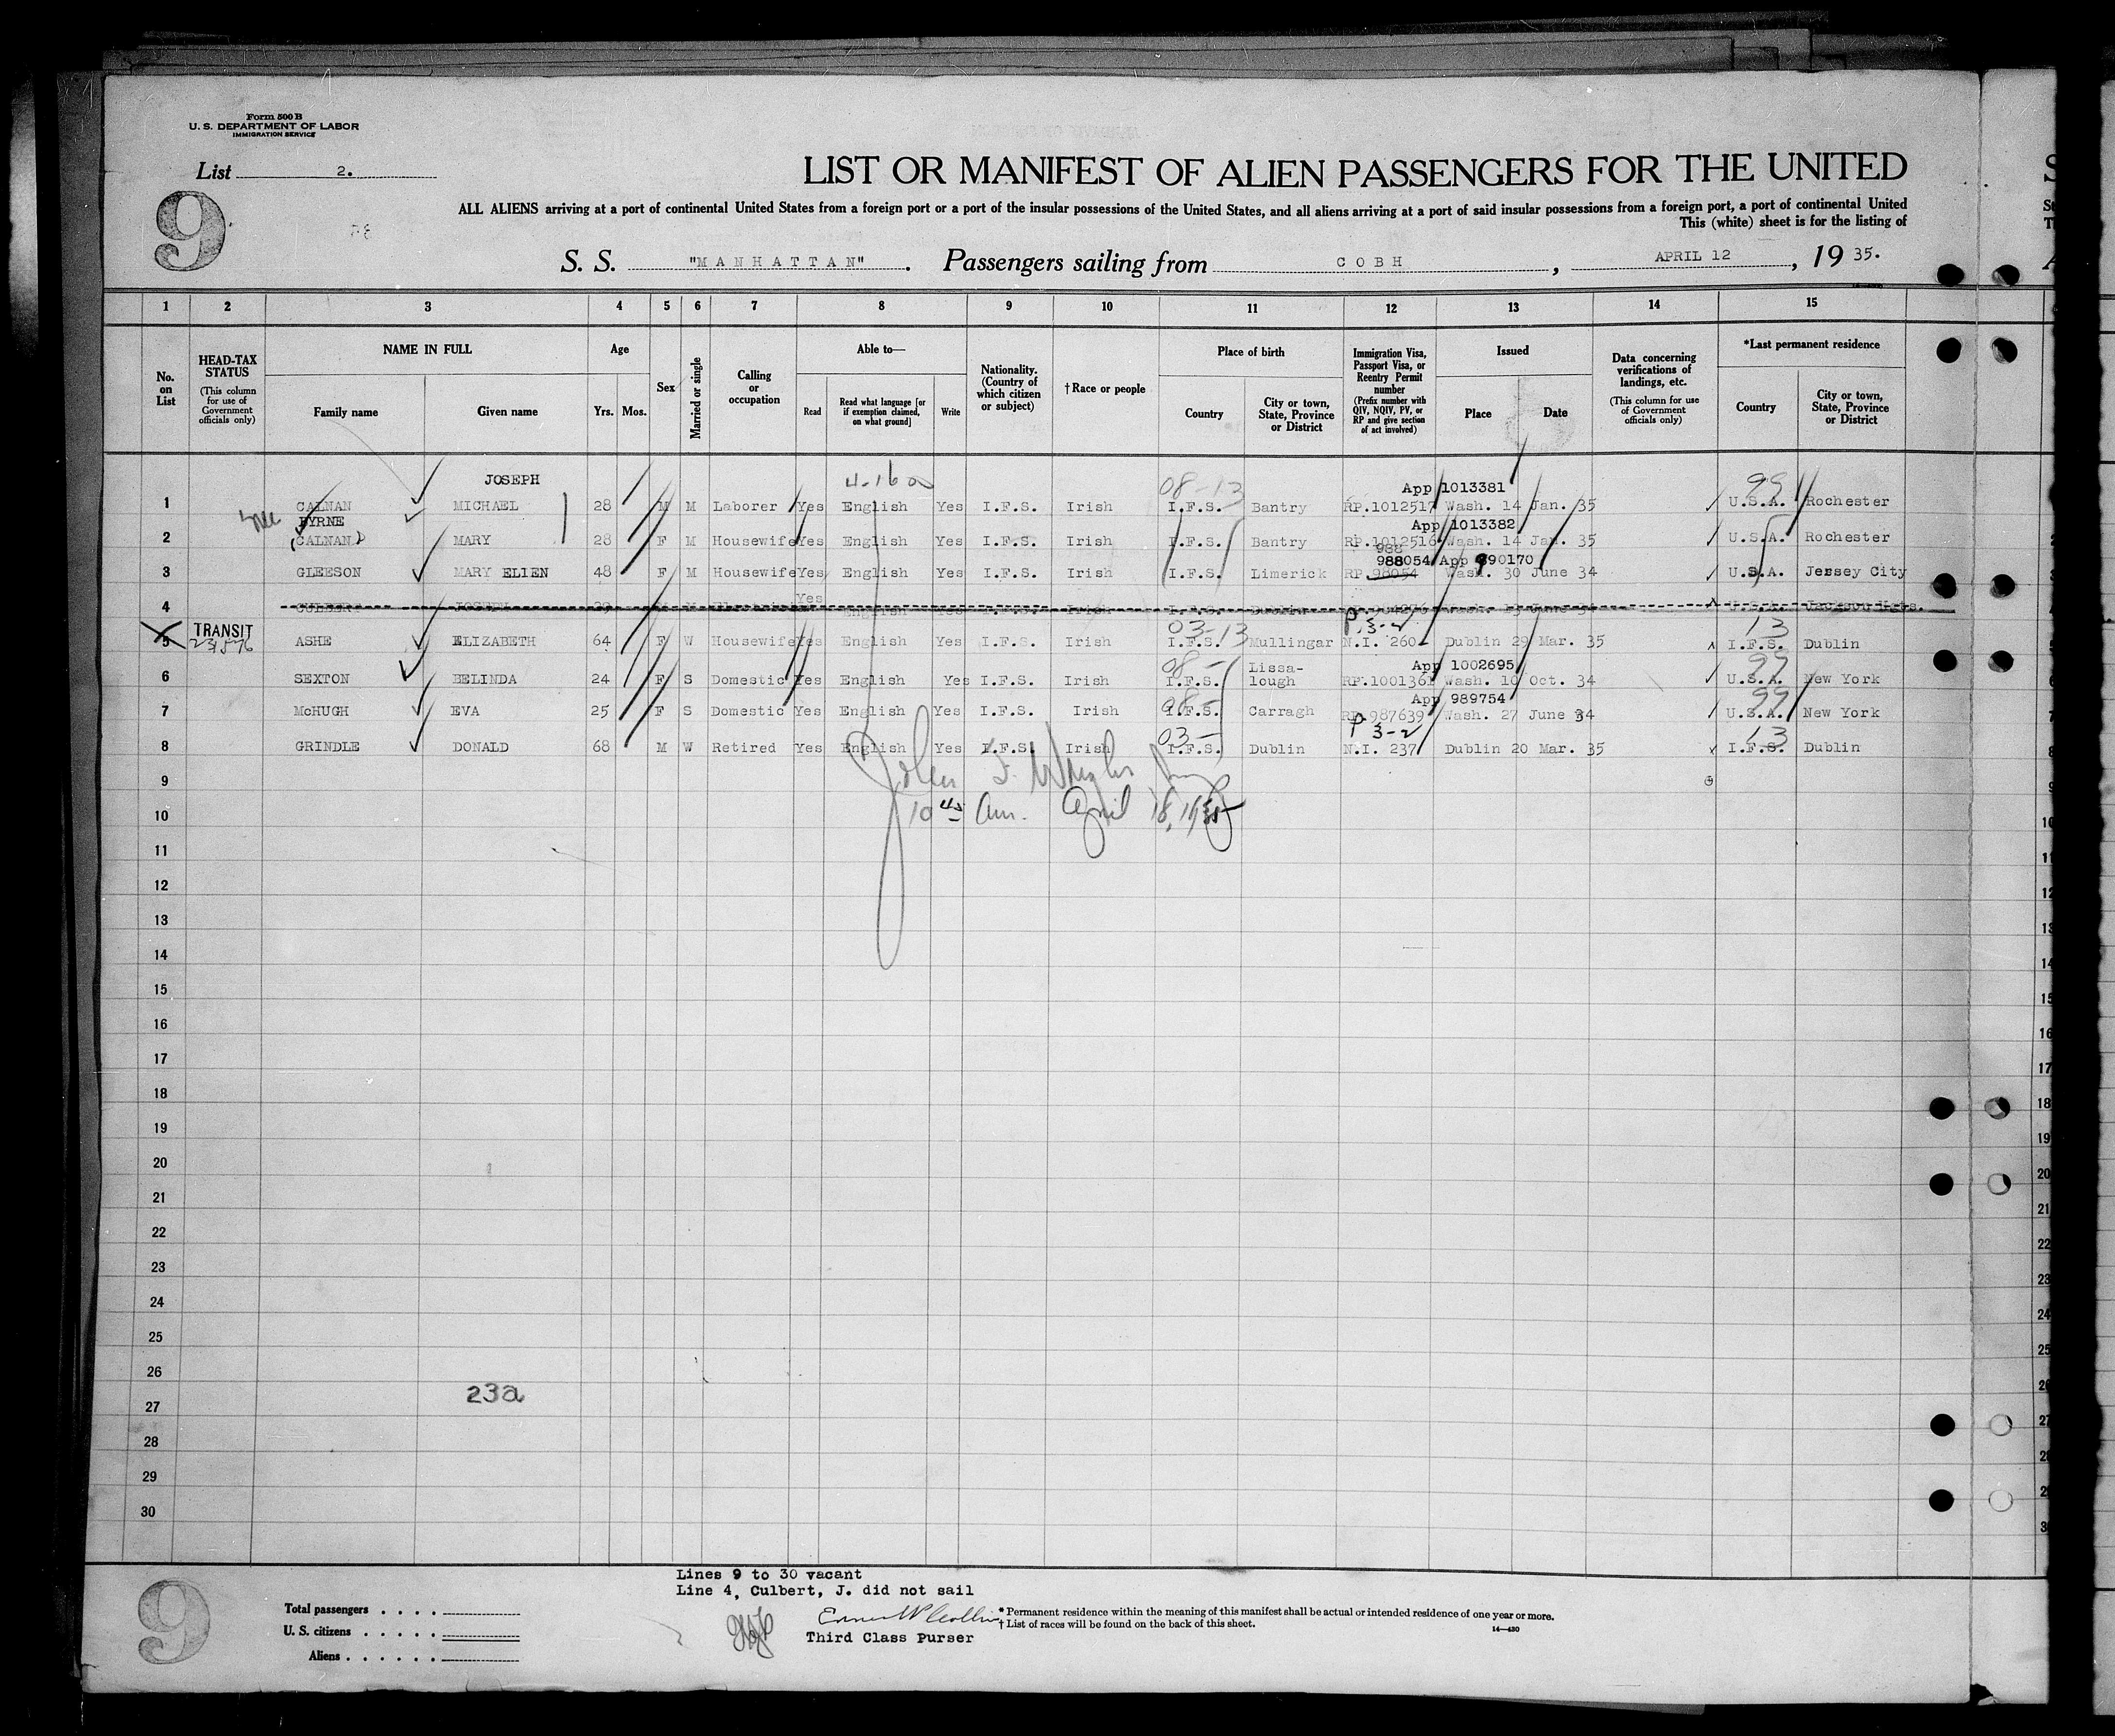 Form 500 B
U. S. DEPARTMENT OF LABOR
IMMIGRATION SERVICE
List 2.
9
LIST OR MANIFEST OF ALIEN PASSENGERS FOR THE UNITED
ALL ALIENS arriving at a port of continental United States from a foreign port or a port of the insular possessions of the United States, and all aliens arriving at a port of said insular possessions from a foreign port, a port of continental United
This (white) sheet is for the listing of
S. S. "MANHATTAN". Passengers sailing from COBH, APRIL 12, 1935.
1 2 3 4 5 6 7 8 9 10 11 12 13 14 15
No. on List
HEAD-TAX STATUS (This column for use of Government officials only)
NAME IN FULL
Family name
Given name
Age
Yrs. Mos.
Sex
Married or single
Calling or occupation
Able to—
Read
Read what language [or if exemption claimed, on what ground]
Write
Nationality. (Country of which citizen or subject)
† Race or people
Place of birth
Country
City or town, State, Province or District
Immigration Visa, Passport Visa, or Reentry Permit number (Prefix number with QIV, NQIV, PV, or RP and give section of act involved)
Issued
Place
Date
Data concerning verifications of landings, etc. (This column for use of Government officials only)
*Last permanent residence
Country
City or town, State, Province or District
JOSEPH 4-1600 08-13 App 1013381 99
1 CALNAN MICHAEL 28 M M Laborer Yes English Yes I.F.S. Irish I.F.S. Bantry RP.1012517 Wash. 14 Jan. 35 U.S.A. Rochester
BYRNE App 1013382
2 (CALNAN) MARY 28 F M Housewife Yes English Yes I.F.S. Irish I.F.S. Bantry RP.1012516 Wash. 14 Jan. 35 U.S.A. Rochester
988
988054 App 990170
3 GLEESON MARY ELLEN 48 F M Housewife Yes English Yes I.F.S. Irish I.F.S. Limerick RP.98054 Wash. 30 June 34 U.S.A. Jersey City
Yes
4 CULBERT
TRANSIT 03-13 P 3-2 13
5 ASHE ELIZABETH 64 F W Housewife Yes English Yes I.F.S. Irish I.F.S. Mullingar N.I. 260 Dublin 29 Mar. 35 I.F.S. Dublin
08- Lissa- App 1002695 99
6 SEXTON BELINDA 24 F S Domestic Yes English Yes I.F.S. Irish I.F.S. lough RP.100136 Wash. 10 Oct. 34 U.S.A. New York
08- App 989754 99
7 McHUGH EVA 25 F S Domestic Yes English Yes I.F.S. Irish I.F.S. Carragh RP.987639 Wash. 27 June 34 U.S.A. New York
03- P 3-2 13
8 GRINDLE DONALD 68 M W Retired Yes English Yes I.F.S. Irish I.F.S. Dublin N.I. 237 Dublin 20 Mar. 35 I.F.S. Dublin
9
10 10 45 am. April 18, 1935
11
12
13
14
15
16
17
18
19
20
21
22
23
24
25
26
23a
27
28
29
30
Lines 9 to 30 vacant
Line 4, Culbert, J. did not sail
9
Total passengers
U. S. citizens
Aliens
Third Class Purser
* Permanent residence within the meaning of this manifest shall be actual or intended residence of one year or more.
† List of races will be found on the back of this sheet.
14—430